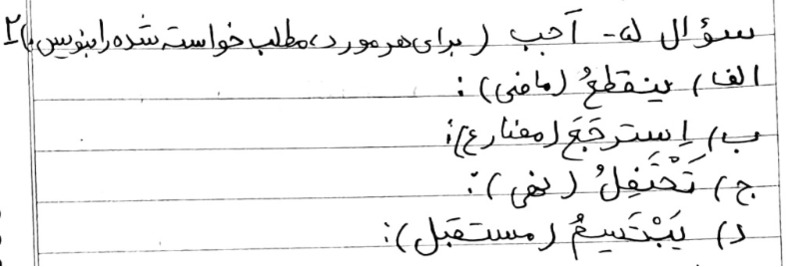 سؤال ۵- أجب (برای هر مورد، مطلب خواسته شده را بنویس.) ۲
الف) ینقطعُ (ماضی):
ب) اِسترجَعَ (مضارع):
ج) تَحْتَفِلُ (نهی):
د) یَبْتَسِمُ (مستقبل):